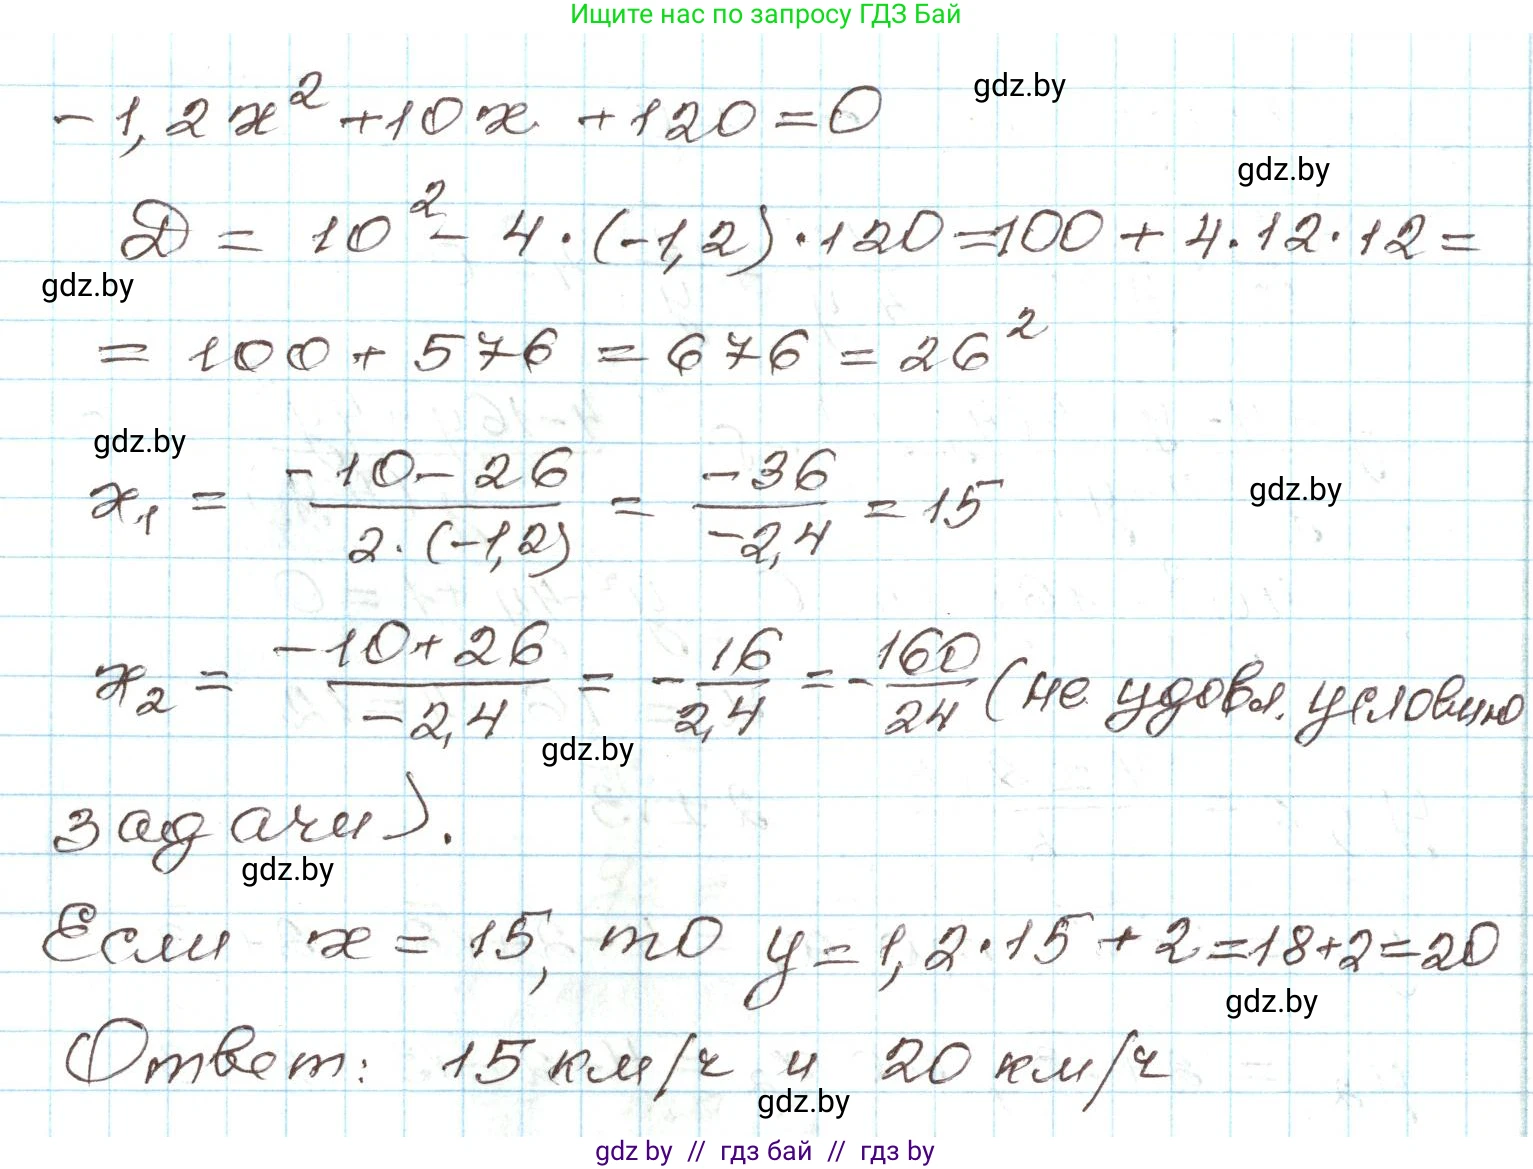 Ищите нас по запросу ГДЗ Бай
-1,2x² +10x +120=0
gdz.by
gdz.by
Д = 10² - 4·(-1,2)·120=100 + 4·12·12=
gdz.by
= 100+576 = 676 = 26²
gdz.by
x₁ = (-10-26)/(2·(-1,2)) = (-36)/(-2,4) = 15
gdz.by
x₂ = (-10+26)/(-2,4) = -16/2,4 = -160/24 (не удовл. условию
gdz.by
задачи).
gdz.by
Если x = 15, то y=1,2·15+2=18+2=20
gdz.by
Ответ: 15 км/ч и 20 км/ч
gdz.by
gdz by // гдз бай // гдз by